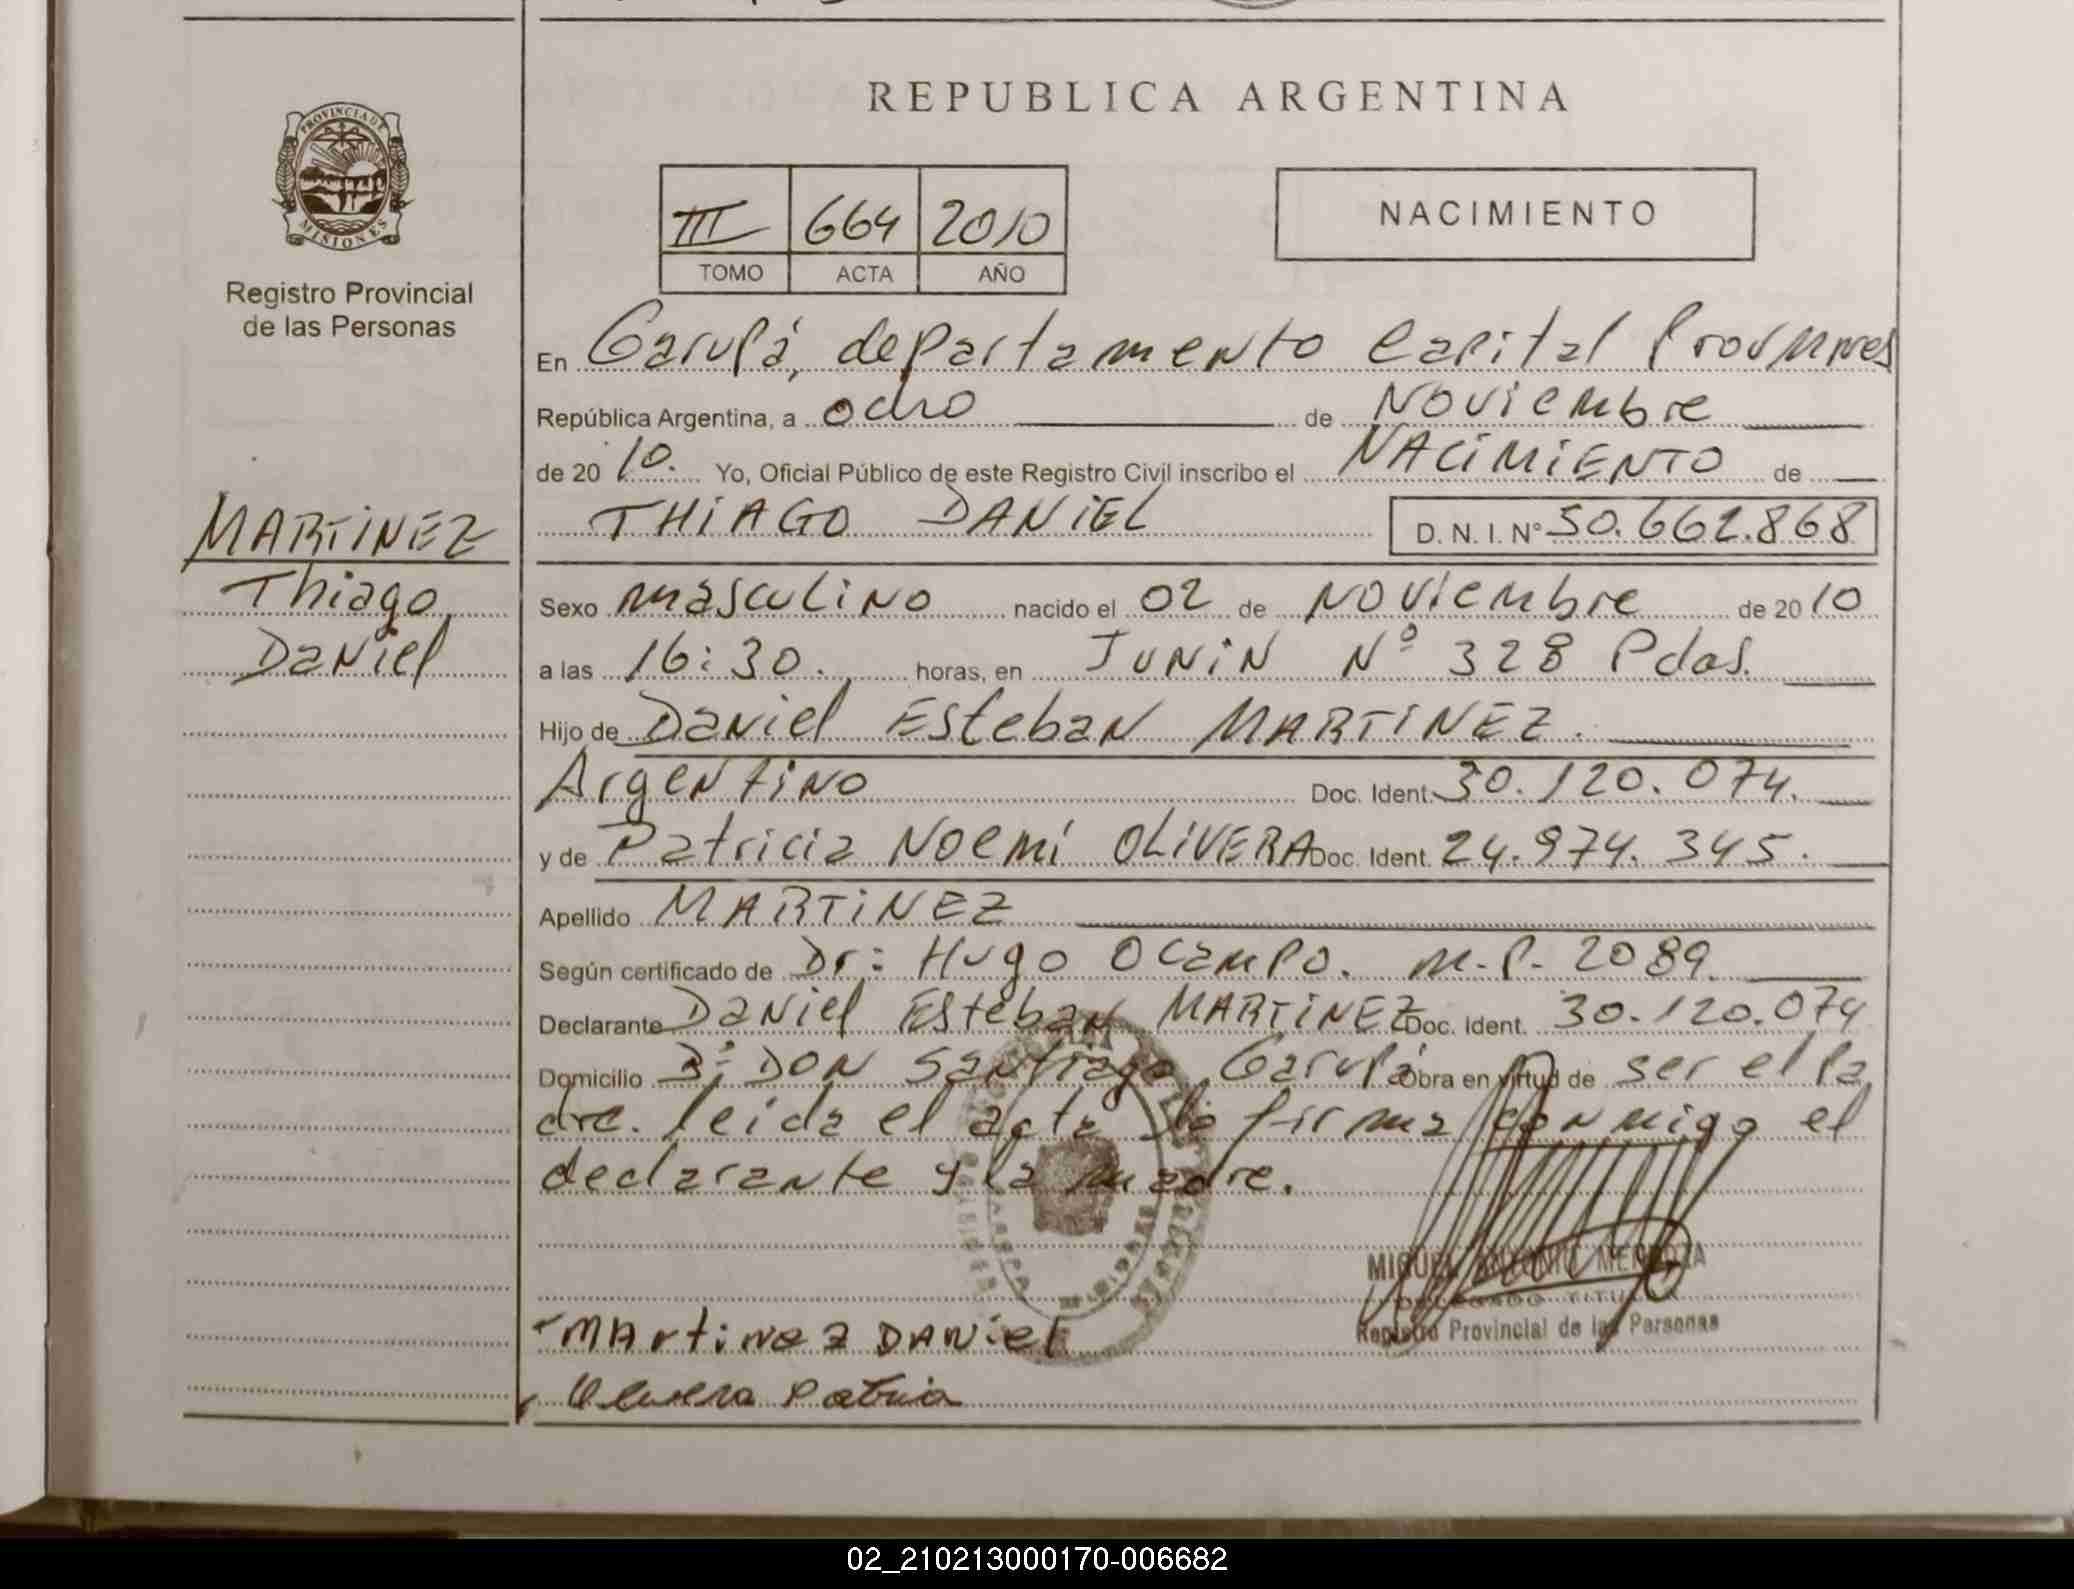 REPUBLICA ARGENTINA
PROVINCIA DE
MISIONES
Registro Provincial
de las Personas
III 664 2010
TOMO ACTA AÑO
NACIMIENTO
En Garupá, departamento Capital Prov Mnes
República Argentina, a ocho de Noviembre
de 2010. Yo, Oficial Público de este Registro Civil inscribo el NACIMIENTO de
THIAGO DANIEL D. N. I. Nº 50.662.868
MARTINEZ
Thiago
Daniel
Sexo masculino nacido el 02 de Noviembre de 2010
a las 16:30. horas, en JUNIN Nº 328 Pdas.
Hijo de Daniel Esteban MARTINEZ.
Argentino Doc. Ident. 30.120.074.
y de Patricia Noemí OLIVERA Doc. Ident. 24.974.345.
Apellido MARTINEZ
Según certificado de Dr: Hugo Ocampo. M.P. 2089.
Declarante Daniel Esteban MARTINEZ Doc. Ident. 30.120.074
Domicilio Bº DON Santiago Garupá Obra en virtud de ser el pa
dre. leida el acta la firma conmigo el
declarante y la madre.
MIGUEL ANTONIO MENDOZA
DELEGADO TITULAR
Registro Provincial de las Personas
Martinez DANiel
Olivera Patricia
02_210213000170-006682